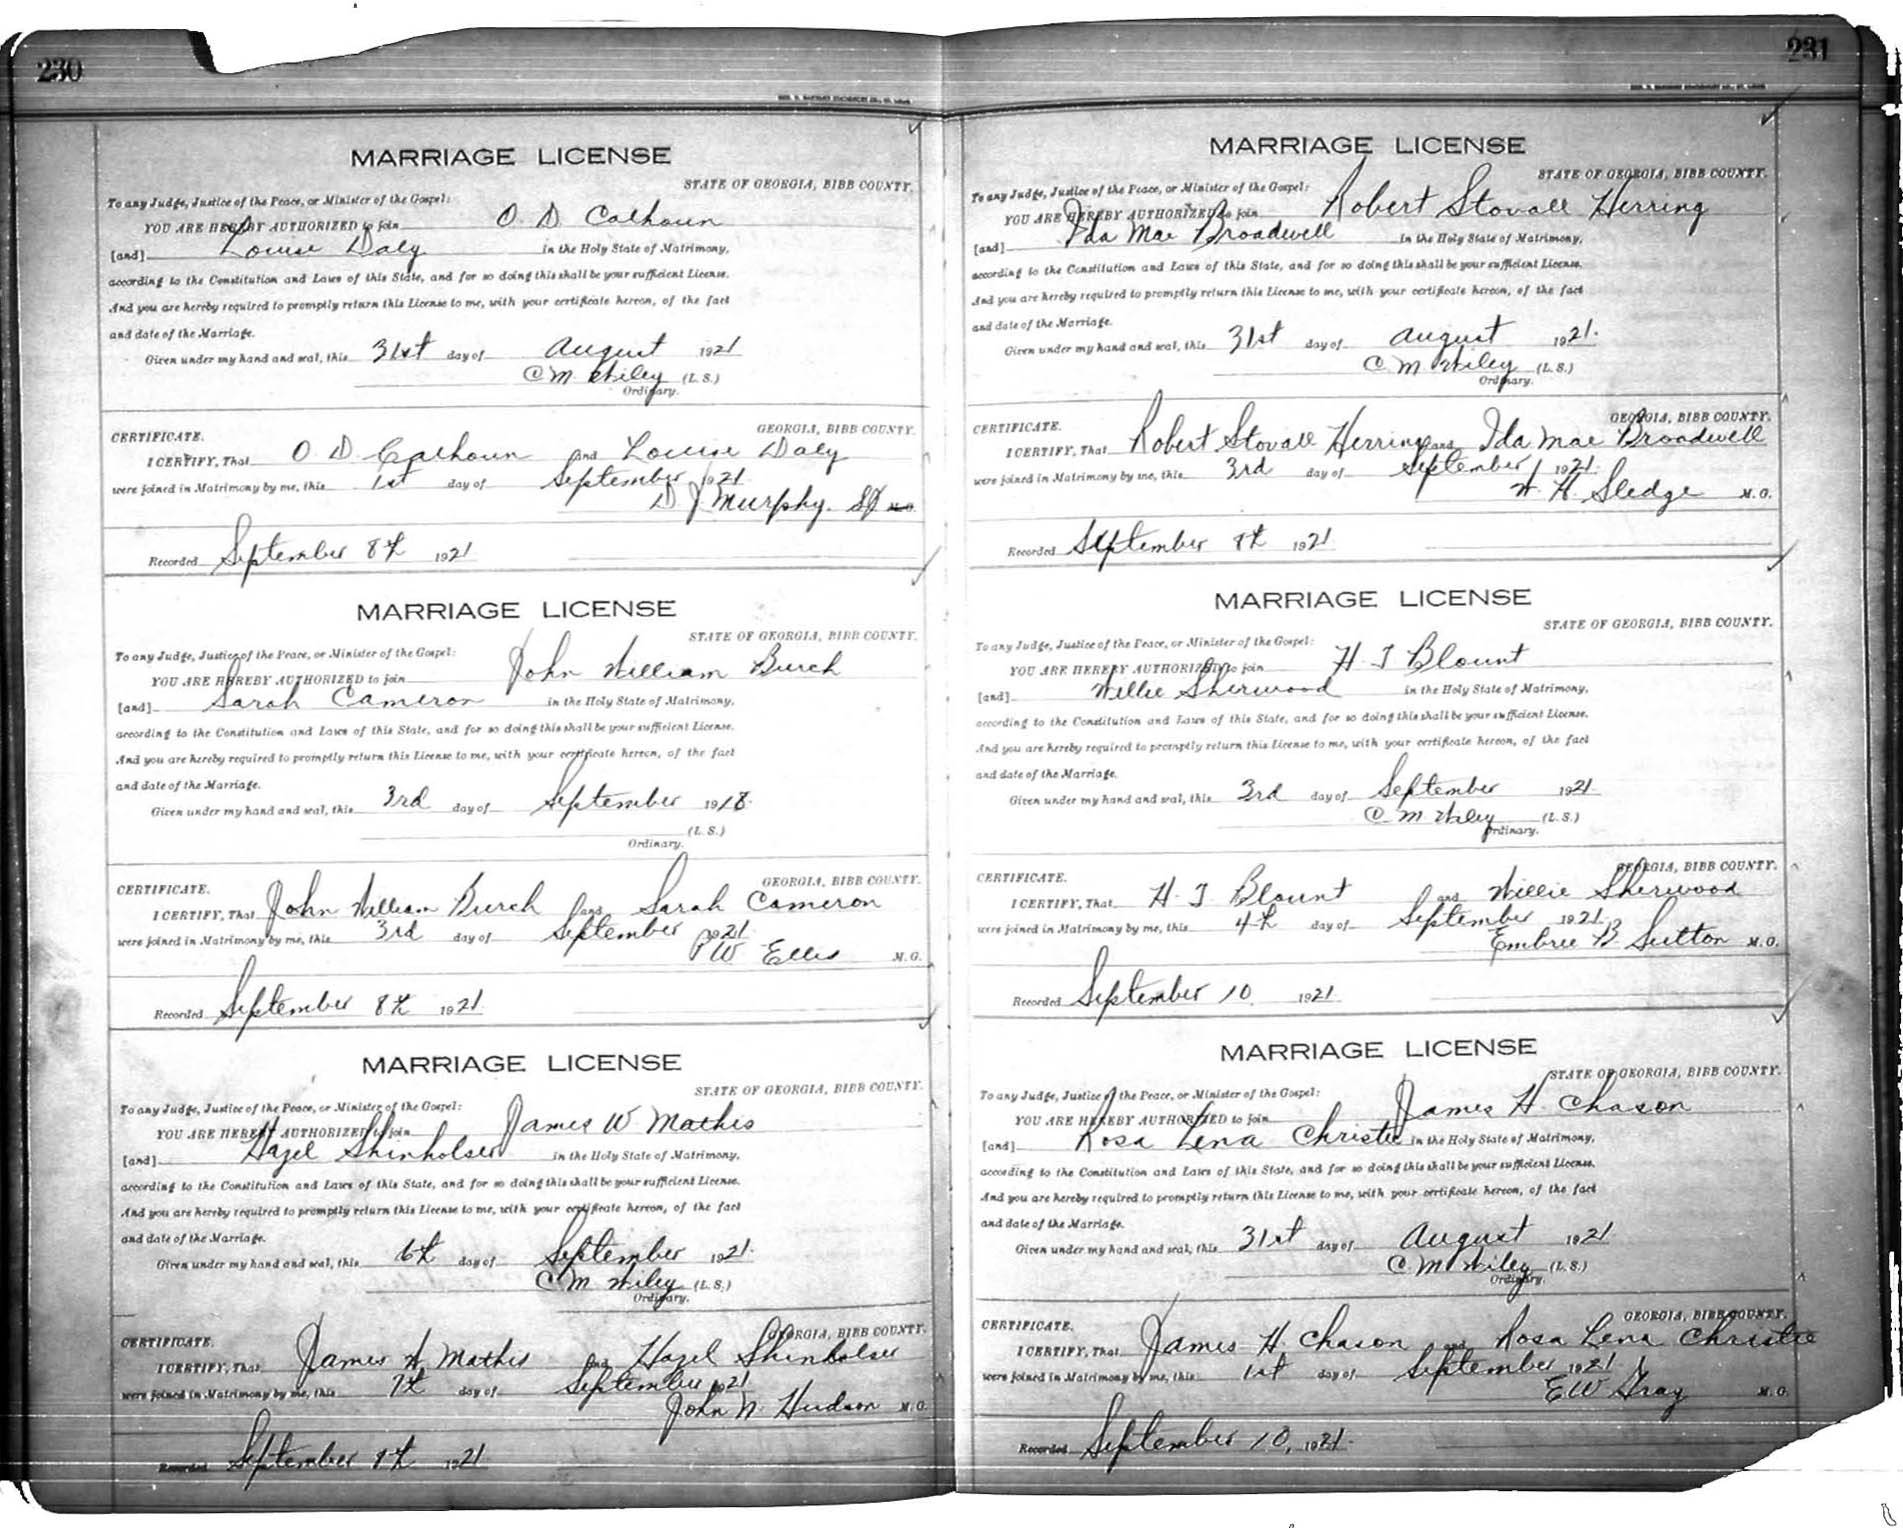 230
MARRIAGE LICENSE
STATE OF GEORGIA, BIBB COUNTY.
To any Judge, Justice of the Peace, or Minister of the Gospel:
YOU ARE HEREBY AUTHORIZED to join O. D. Calhoun
[and] Louise Daly in the Holy State of Matrimony,
according to the Constitution and Laws of this State, and for so doing this shall be your sufficient License.
And you are hereby required to promptly return this License to me, with your certificate hereon, of the fact
and date of the Marriage.
Given under my hand and seal, this 31st day of August 1921
C M Wiley (L. S.)
Ordinary.
GEORGIA, BIBB COUNTY.
CERTIFICATE.
I CERTIFY, That O. D. Calhoun and Louise Daly
were joined in Matrimony by me, this 1st day of September 1921
D J Murphy. M.G.
Recorded September 8th 1921
MARRIAGE LICENSE
STATE OF GEORGIA, BIBB COUNTY.
To any Judge, Justice of the Peace, or Minister of the Gospel:
YOU ARE HEREBY AUTHORIZED to join John William Burch
[and] Sarah Cameron in the Holy State of Matrimony,
according to the Constitution and Laws of this State, and for so doing this shall be your sufficient License.
And you are hereby required to promptly return this License to me, with your certificate hereon, of the fact
and date of the Marriage.
Given under my hand and seal, this 3rd day of September 1918.
(L. S.)
Ordinary.
GEORGIA, BIBB COUNTY.
CERTIFICATE.
I CERTIFY, That John William Burch and Sarah Cameron
were joined in Matrimony by me, this 3rd day of September 1921
P W Ellis M.G.
Recorded September 8th 1921
MARRIAGE LICENSE
STATE OF GEORGIA, BIBB COUNTY.
To any Judge, Justice of the Peace, or Minister of the Gospel:
YOU ARE HEREBY AUTHORIZED to join James W Mathis
[and] Hazel Shinholser in the Holy State of Matrimony,
according to the Constitution and Laws of this State, and for so doing this shall be your sufficient License.
And you are hereby required to promptly return this License to me, with your certificate hereon, of the fact
and date of the Marriage.
Given under my hand and seal, this 6th day of September 1921.
C M Wiley (L. S.)
Ordinary.
GEORGIA, BIBB COUNTY.
CERTIFICATE.
I CERTIFY, That James W Mathis and Hazel Shinholser
were joined in Matrimony by me, this 7th day of September 1921
John N. Hudson M.G.
Recorded September 8th 1921
231
MARRIAGE LICENSE
STATE OF GEORGIA, BIBB COUNTY.
To any Judge, Justice of the Peace, or Minister of the Gospel:
YOU ARE HEREBY AUTHORIZED to join Robert Stovall Herring
[and] Ida Mae Broadwell in the Holy State of Matrimony,
according to the Constitution and Laws of this State, and for so doing this shall be your sufficient License.
And you are hereby required to promptly return this License to me, with your certificate hereon, of the fact
and date of the Marriage.
Given under my hand and seal, this 31st day of August 1921.
C M Wiley (L. S.)
Ordinary.
GEORGIA, BIBB COUNTY.
CERTIFICATE.
I CERTIFY, That Robert Stovall Herring and Ida Mae Broadwell
were joined in Matrimony by me, this 3rd day of September 1921.
W. H. Sledge M.G.
Recorded September 8th 1921
MARRIAGE LICENSE
STATE OF GEORGIA, BIBB COUNTY.
To any Judge, Justice of the Peace, or Minister of the Gospel:
YOU ARE HEREBY AUTHORIZED to join H. T Blount
[and] Willie Sherwood in the Holy State of Matrimony,
according to the Constitution and Laws of this State, and for so doing this shall be your sufficient License.
And you are hereby required to promptly return this License to me, with your certificate hereon, of the fact
and date of the Marriage.
Given under my hand and seal, this 3rd day of September 1921.
C M Wiley (L. S.)
Ordinary.
GEORGIA, BIBB COUNTY.
CERTIFICATE.
I CERTIFY, That H. T Blount and Willie Sherwood
were joined in Matrimony by me, this 4th day of September 1921
Embree B Sutton M.G.
Recorded September 10. 1921.
MARRIAGE LICENSE
STATE OF GEORGIA, BIBB COUNTY.
To any Judge, Justice of the Peace, or Minister of the Gospel:
YOU ARE HEREBY AUTHORIZED to join James H. Chason
[and] Rosa Lena Christie in the Holy State of Matrimony,
according to the Constitution and Laws of this State, and for so doing this shall be your sufficient License.
And you are hereby required to promptly return this License to me, with your certificate hereon, of the fact
and date of the Marriage.
Given under my hand and seal, this 31st day of August 1921
C M Wiley (L. S.)
Ordinary.
GEORGIA, BIBB COUNTY.
CERTIFICATE.
I CERTIFY, That James H. Chason and Rosa Lena Christie
were joined in Matrimony by me, this 1st day of September 1921
E W Gray M.G.
Recorded September 10, 1921.